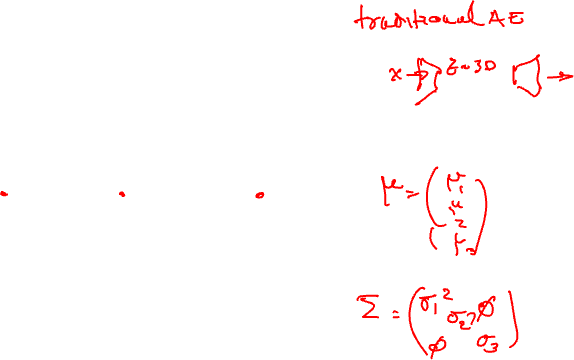 traditional AE
x → z ~ 3D →
μ = (μ₁ μ₂ μ₃)
Σ = (σ₁² σ₂² φ φ σ₃)